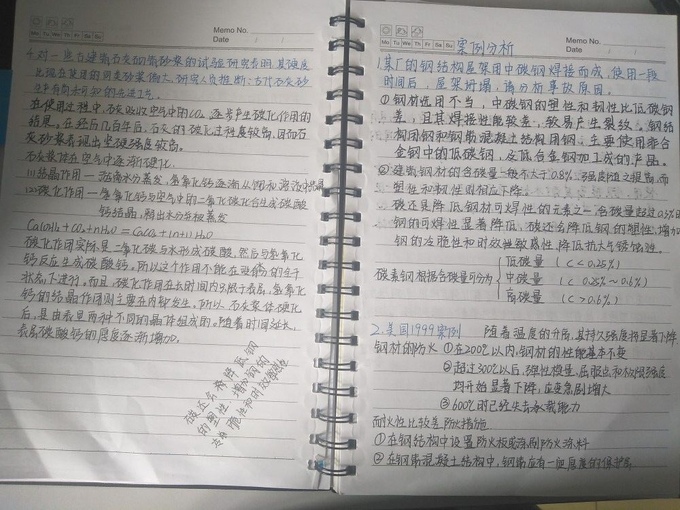 Memo No.
Mo Tu We Th Fr Sa Su
Date / /
4.对一些古建筑石灰砌筑砂浆的试验研究表明,其硬度
研究人员推断:古代石灰砂
在使用过程中,石灰吸收空气中的CO₂逐步产生碳化作用的
结果。在经历几百年后,石灰的碳化过程度较高,因而石
灰砂浆表现出坚硬强度较高。
石灰浆体在空气中逐渐硬化
(1)结晶作用—游离水分蒸发,氢氧化钙逐渐从饱和溶液中
(2)碳化作用—氢氧化钙与空气中的二氧化碳化合生成碳酸
钙结晶,释出水分并被蒸发
Ca(OH)₂+CO₂+nH₂O=CaCO₃+(n+1)H₂O
碳化作用实际是二氧化碳与水形成碳酸,然后与氢氧化
钙反应生成碳酸钙。所以这个作用不能在没有的全干
状态下进行。而且,碳化作用在长时间内只限于表层,氢氧化
钙的结晶作用则主要在内部发生。所以,石灰浆体硬化
后,是由表里两种不同的晶体组成的。随着时间延长,
表层碳酸钙的厚度逐渐增加。
碳还会降低钢
的塑性,增加钢的
冷脆性和时效敏感性
Memo No.
Mo Tu We Th Fr Sa Su
Date / /
案例分析
1.某厂的钢结构屋架用中碳钢焊接而成,使用一段
时间后,屋架坍塌,请分析事故原因。
①钢材选用不当,中碳钢的塑性和韧性比低碳钢
差,且其焊接性能较差,较易产生裂纹。钢结
构用钢和钢筋混凝土结构用钢,主要使用碳合
金钢中的低碳钢,及低合金钢加工成的产品。
②建筑钢材的含碳量一般不大于0.8%,强度随之提高,而
塑性和韧性则相应下降
③碳还是降低钢材可焊性的元素之一,含碳量超过0.3%时
钢的可焊性显著降低,碳还会降低钢的塑性,增加
钢的冷脆性和时效敏感性,降低抗大气锈蚀性。
低碳量 (C<0.25%)
碳素钢根据含碳量可分为 中碳量 (C 0.25%~0.6%)
高碳量 (C>0.6%)
2.美国1999案例 随着温度的升高,其持久强度将显著下降
钢材的防火 ①在200℃以内,钢材的性能基本不变
②超过300℃以后,弹性模量,屈服点和极限强度
均开始显著下降,应变急剧增大
③600℃时已经失去承载能力
耐火性比较差 防火措施
①在钢结构中设置防火板或涂刷防火涂料
②在钢筋混凝土结构中,钢筋应有一定厚度的保护层